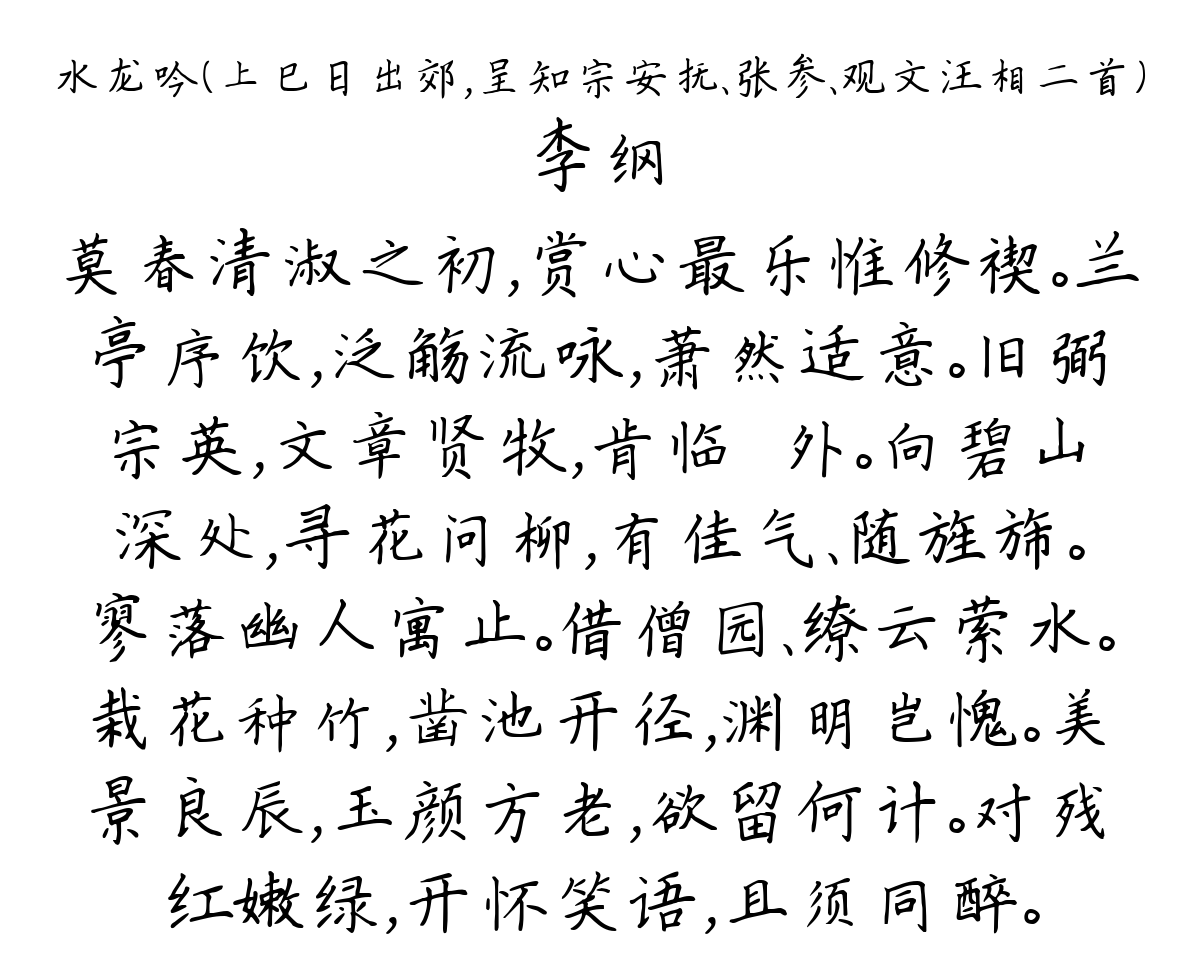 水龙吟(上巳日出郊,呈知宗安抚、张参、观文汪相二首)
李纲
莫春清淑之初,赏心最乐惟修禊。兰
亭序饮,泛觞流咏,萧然适意。旧弼
宗英,文章贤牧,肯临 外。向碧山
深处,寻花问柳,有佳气、随旌旆。
寥落幽人寓止。借僧园、缭云萦水。
栽花种竹,凿池开径,渊明岂愧。美
景良辰,玉颜方老,欲留何计。对残
红嫩绿,开怀笑语,且须同醉。